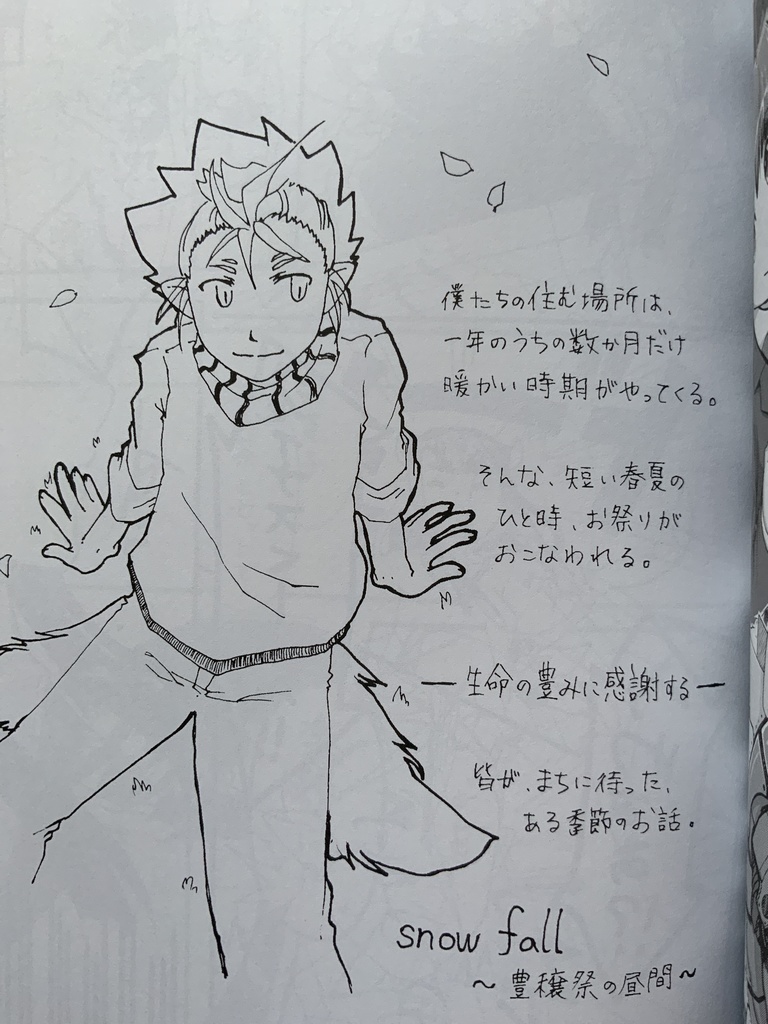 僕たちの住む場所は、
一年のうちの数か月だけ
暖かい時期がやってくる。
そんな、短い春夏の
ひと時、お祭りが
おこなわれる。
―生命の豊みに感謝する―
皆が、まちに待った、
ある季節のお話。
snow fall
～豊穣祭の昼間～